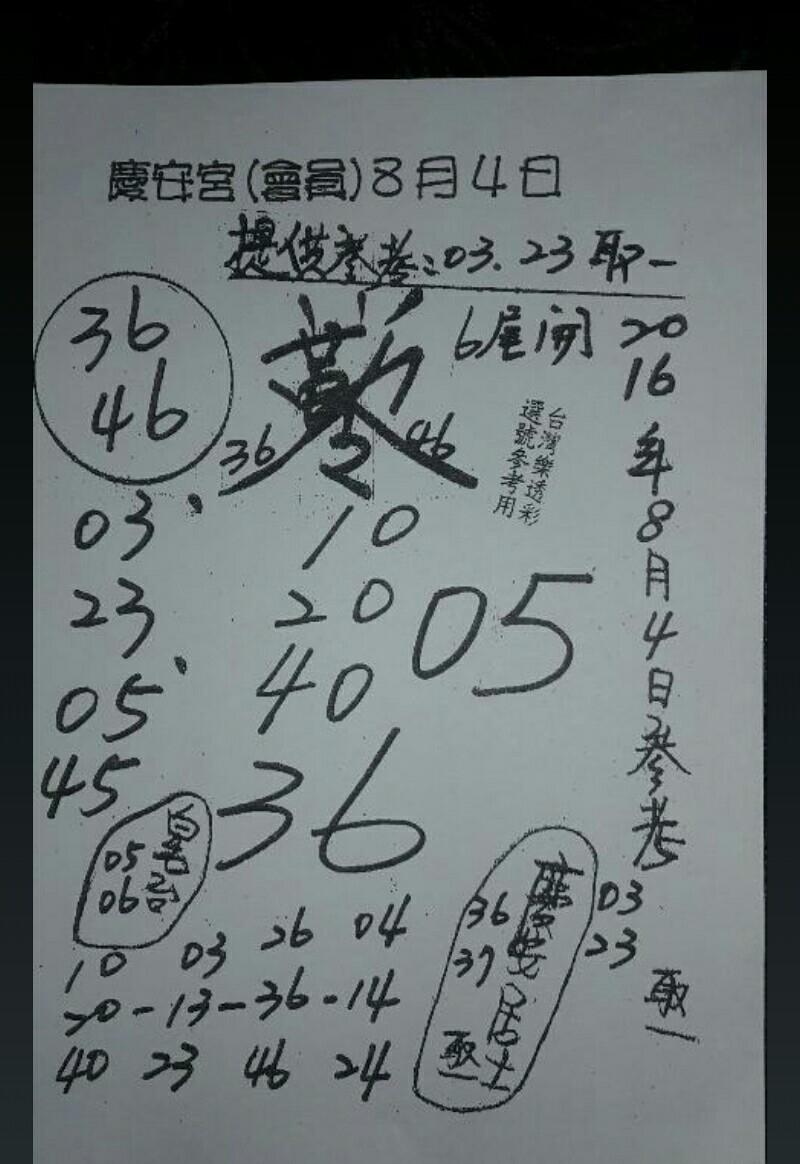 慶安宮(會員)8月4日
提供參考:03.23取一
36
46
6尾開
36 46
台灣樂透彩
選號參考用
2016年8月4日參考
03、
23
05、
45
10
20
40
05
36
05
06
慶安居士
36
37
取一
03
23
取一
10 03 26 04
20-13-36-14
40 23 46 24